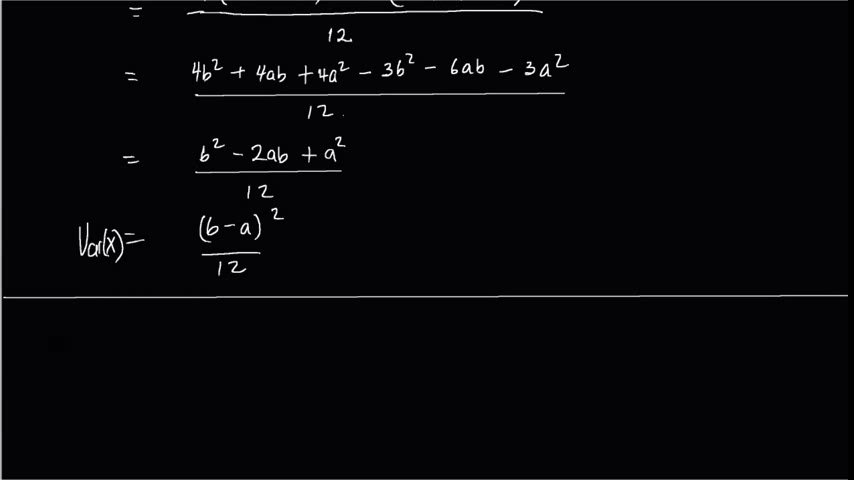 =
12
= 4b² + 4ab + 4a² − 3b² − 6ab − 3a²
12
= b² − 2ab + a²
12
Var(x) = (b − a)²
12